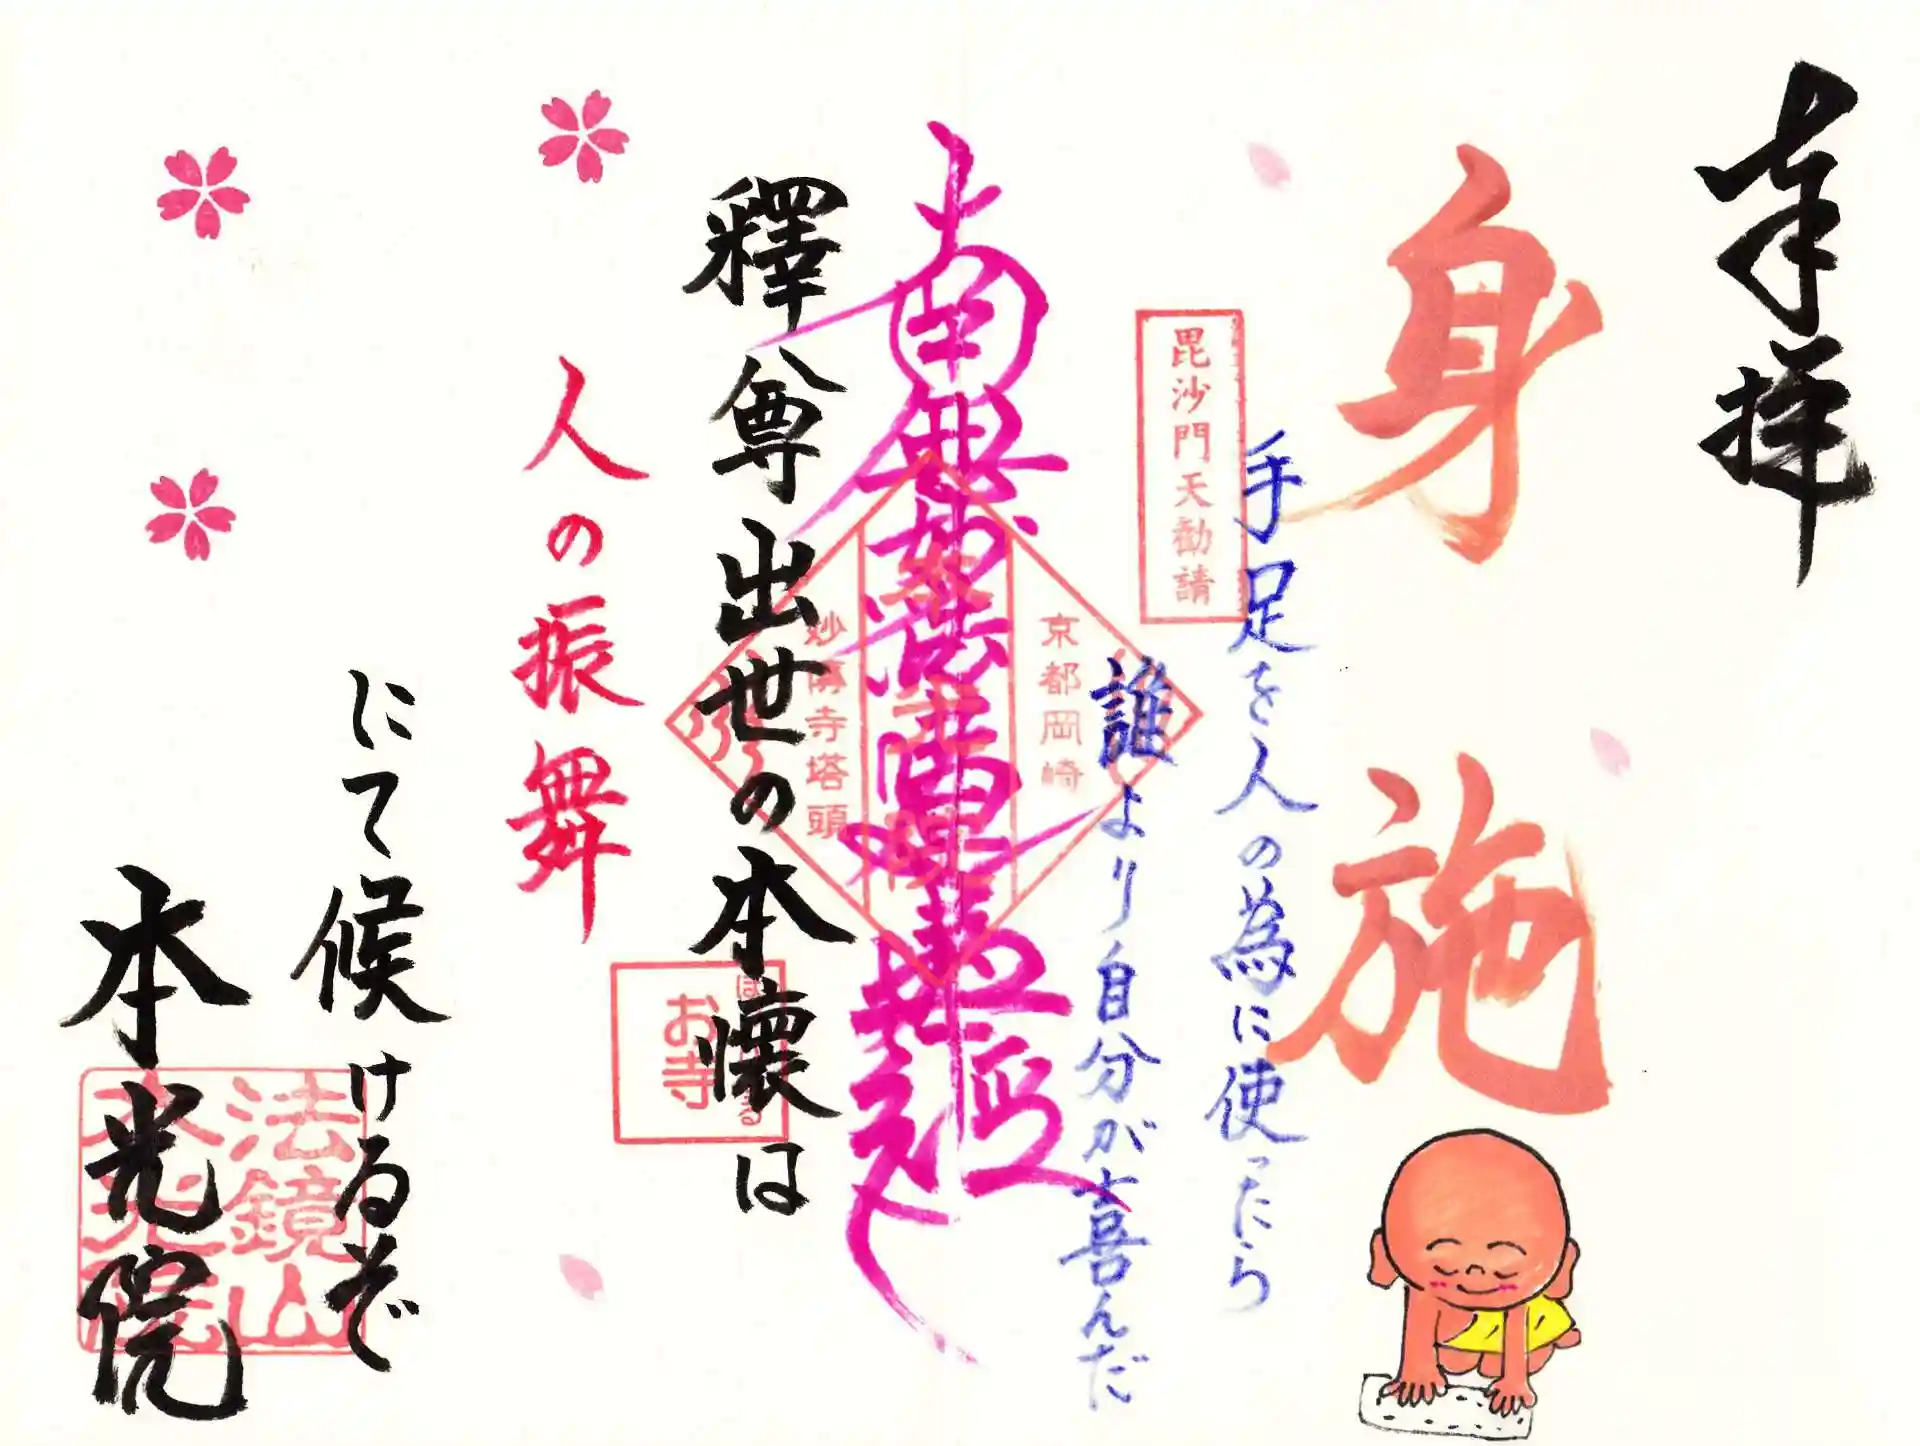 奉拝
身施
手足を人の為に使ったら
誰より自分が喜んだ
毘沙門天勧請
南無妙法蓮華経
京都岡崎
妙傳寺塔頭
釋尊出世の本懐は
人の振舞
にて候けるぞ
本光院
お寺
法鏡山
本光院